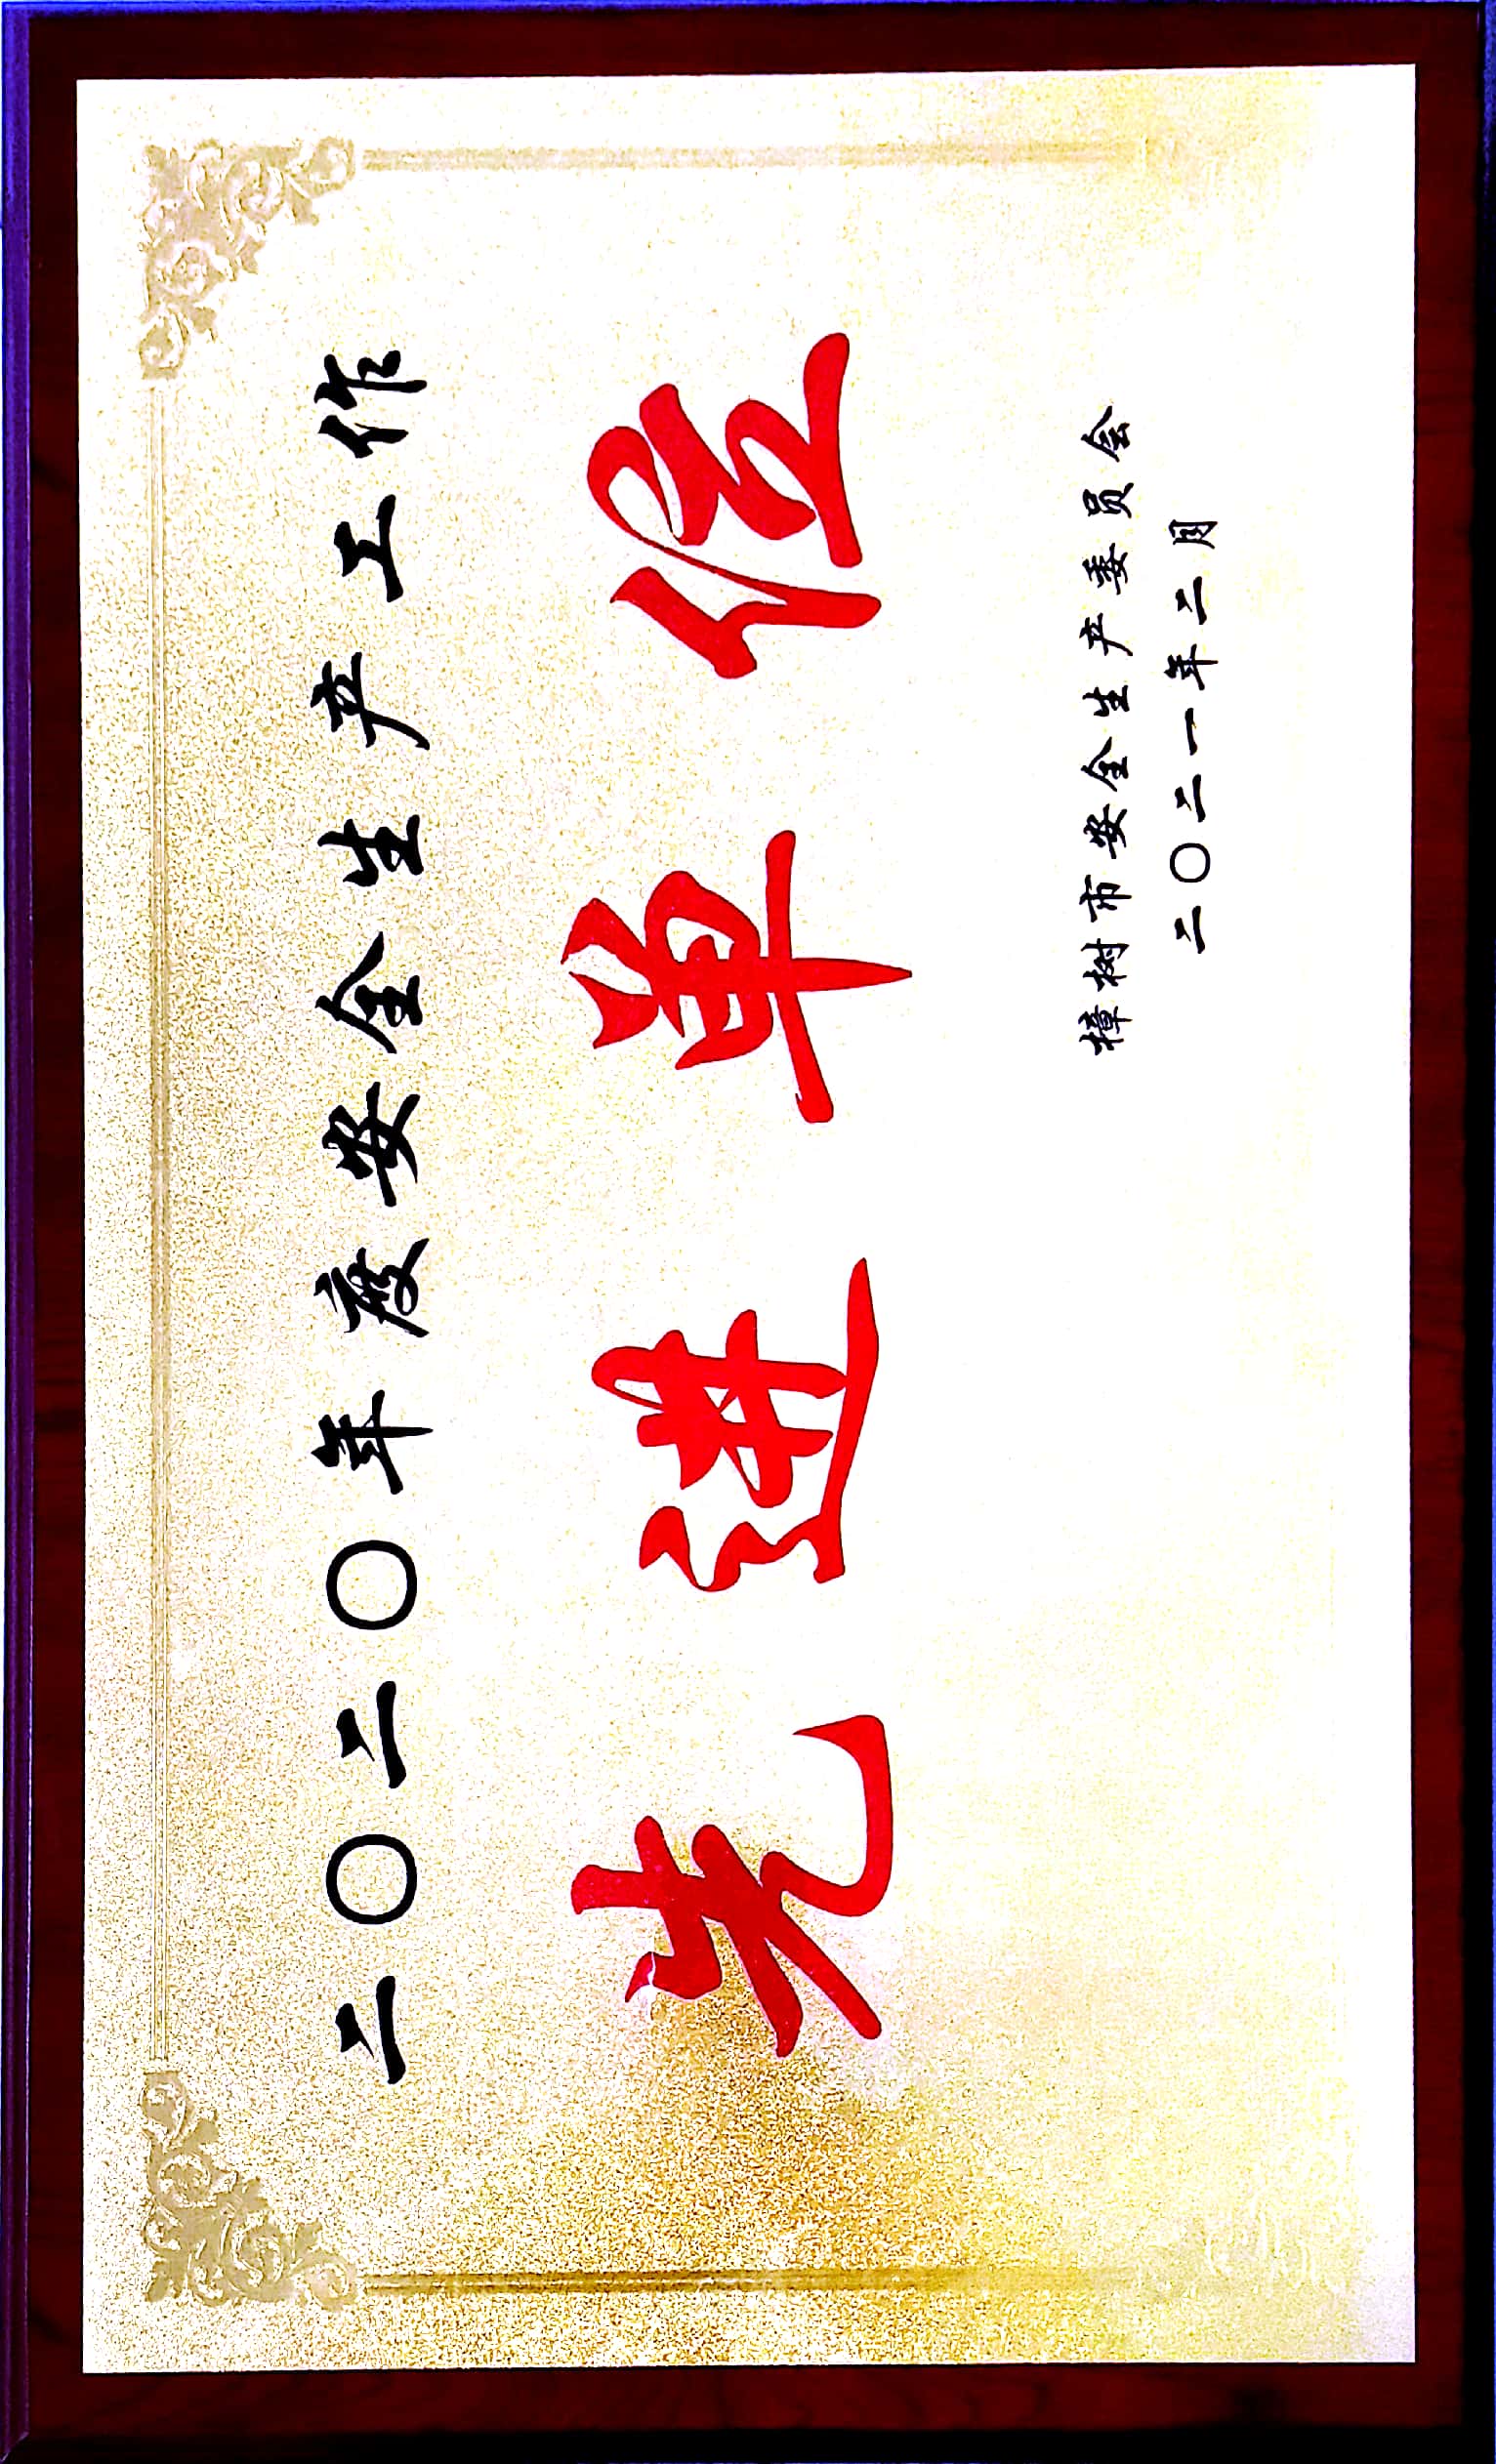 二〇二〇年度安全生产工作
先进单位
樟树市安全生产委员会
二〇二一年二月